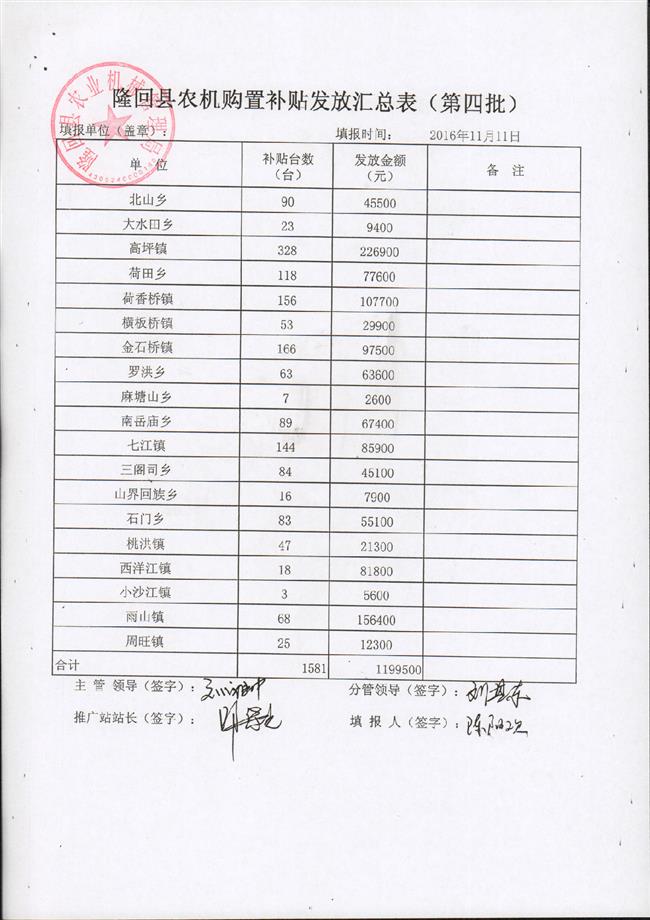 隆回县农机购置补贴发放汇总表（第四批）
隆回县农业机械管理局
填报单位（盖章）： 填报时间： 2016年11月11日
单 位 补贴台数（台） 发放金额（元） 备 注
北山乡 90 45500
大水田乡 23 9400
高坪镇 328 226900
荷田乡 118 77600
荷香桥镇 156 107700
横板桥镇 53 29900
金石桥镇 166 97500
罗洪乡 63 63600
麻塘山乡 7 2600
南岳庙乡 89 67400
七江镇 144 85900
三阁司乡 84 45100
山界回族乡 16 7900
石门乡 83 55100
桃洪镇 47 21300
西洋江镇 18 81800
小沙江镇 3 5600
雨山镇 68 156400
周旺镇 25 12300
合计 1581 1199500
主 管 领导（签字）： 分管领导（签字）：
推广站站长（签字）： 填 报 人（签字）：